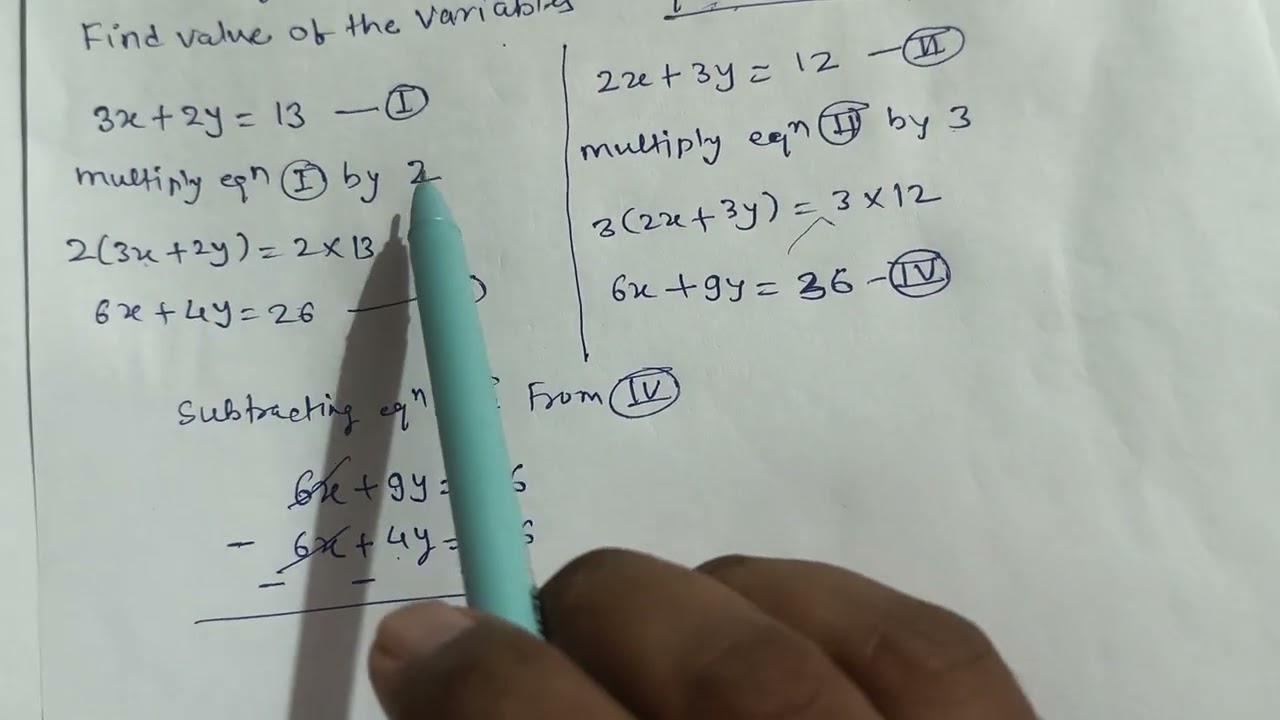 Find value of the variables
3x + 2y = 13 — I
multiply eqn I by 2
2(3x + 2y) = 2 × 13
6x + 4y = 26 —
2x + 3y = 12 — II
multiply eqn II by 3
3(2x + 3y) = 3 × 12
6x + 9y = 36 — IV
Subtracting eqn From IV
6x + 9y = 6
- 6x + 4y = 6
- -